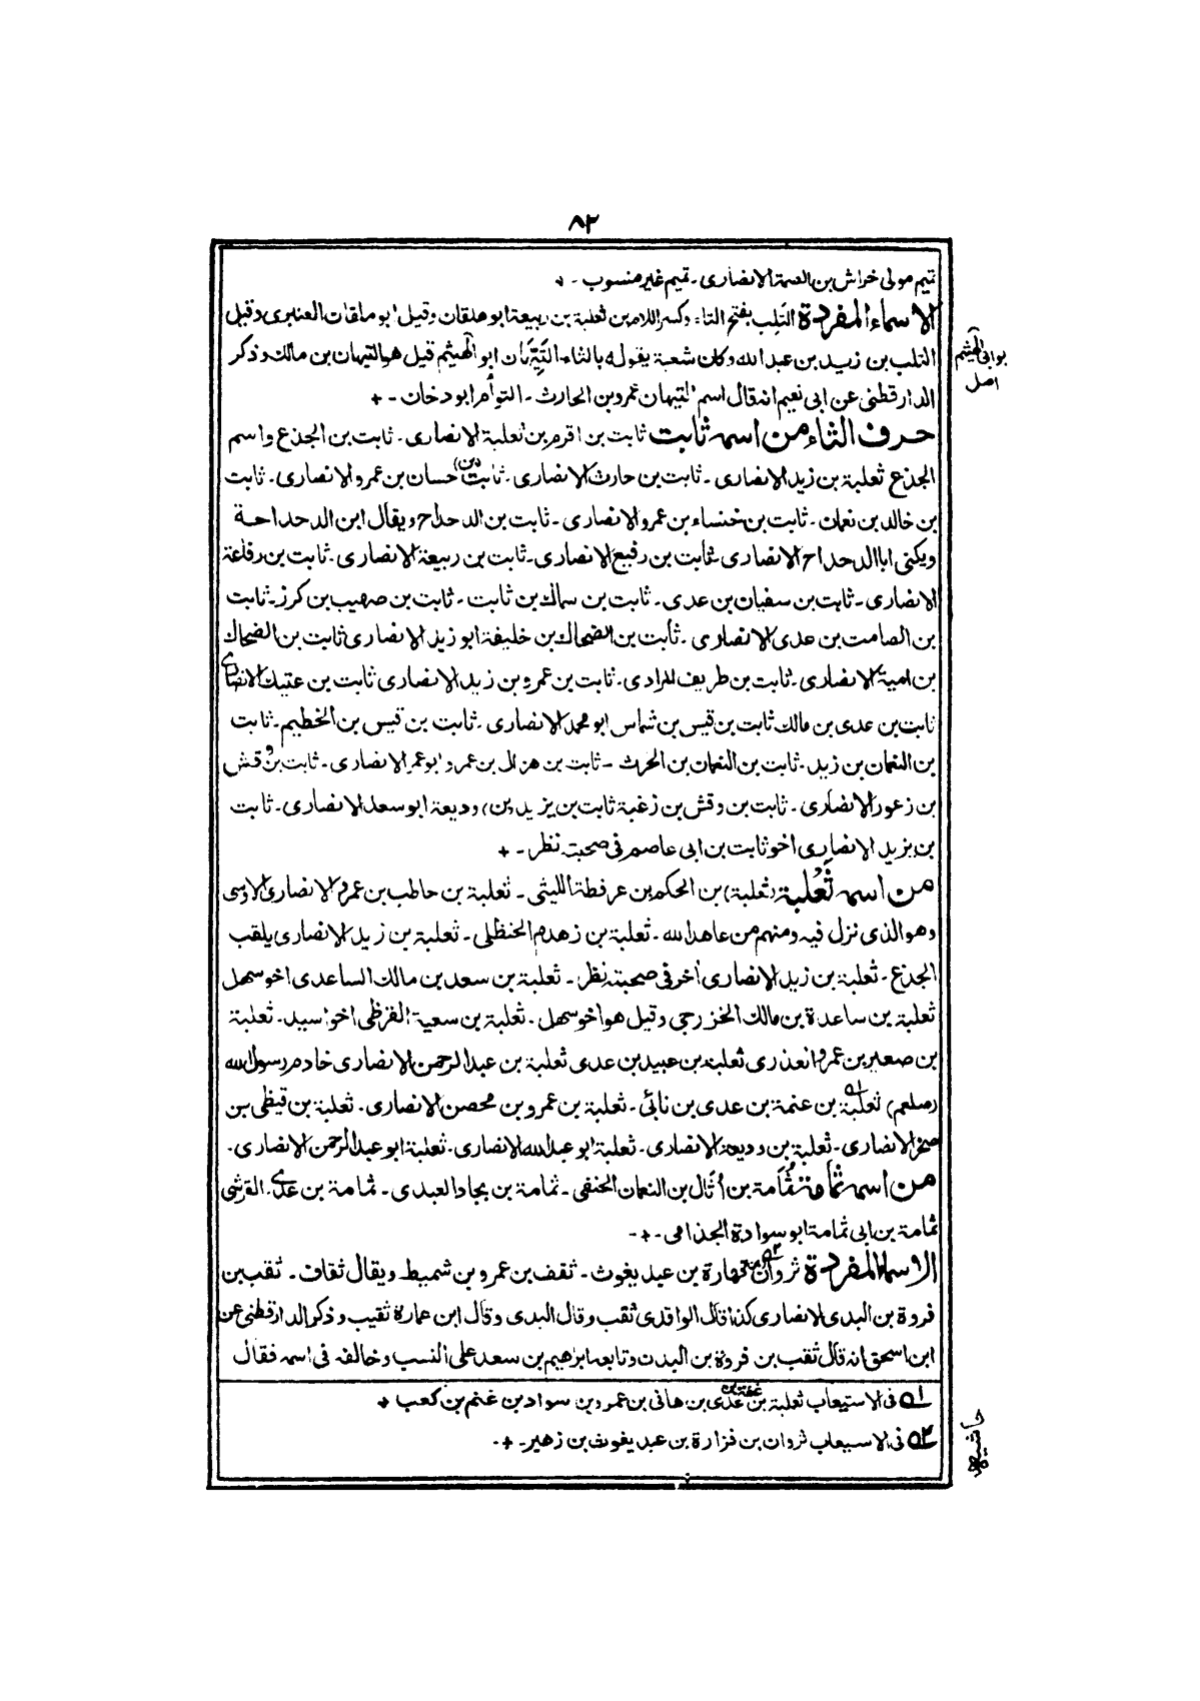 ٨٢
تميم مولى خراش بن الصمة الانصارى ـ تميم غير منسوب ـ +
الاسماء المفردة التلب بفتح التاء وكسر اللام بن ثعلبة بن ربيعة ابو هلقان وقيل ابو ملقان العنبرى وقيل
التلب بن زيد بن عبد الله وكان شعبة يقوله بالثاء التيهان ابو الهيثم قيل هو التيهان بن مالك وذكر
بو ابى الهيثم
اصل
الدارقطنى عن ابى نعيم انه قال اسم التيهان عمرو بن الحارث ـ التوأم ابو دخان ـ +
حرف الثاء من اسمه ثابت ثابت بن اقرم بن ثعلبة الانصارى ـ ثابت بن الجذع واسم
الجذع ثعلبة بن زيد الانصارى ـ ثابت بن حارث الانصارى ـ ثابت (بن) حسان بن عمرو الانصارى ـ ثابت
بن خالد بن نعمان ـ ثابت بن خنساء بن عمرو الانصارى ـ ثابت بن الدحداح ويقال ابن الدحداحة
ويكنى ابا الدحداح الانصارى ـ ثابت بن رفيع الانصارى ـ ثابت بن ربيعة الانصارى ـ ثابت بن رفاعة
الانصارى ـ ثابت بن سفيان بن عدى ـ ثابت بن سماك بن ثابت ـ ثابت بن صهيب بن كرز ـ ثابت
بن الصامت بن عدى الانصارى ـ ثابت بن الضحاك بن خليفة ابو زيد الانصارى ثابت بن الضحاك
بن امية الانصارى ـ ثابت بن طريف المرادى ـ ثابت بن عمرو بن زيد الانصارى ثابت بن عتيك الانصارى
ثابت بن عدى بن مالك ثابت بن قيس بن شماس ابو محمد الانصارى ـ ثابت بن قيس بن الخطيم ـ ثابت
بن النعمان بن زيد ـ ثابت بن النعمان بن الحرث ـ ثابت بن هزال بن عمرو ابو عمر الانصارى ـ ثابت بن وقش
بن زعور الانصارى ـ ثابت بن وقش بن زغبة ثابت بن يزيد (بن) وديعة ابو سعد الانصارى ـ ثابت
بن يزيد الانصارى اخو ثابت بن ابى عاصم فى صحبته نظر ـ +
من اسمه ثعلبة (ثعلبة) بن الحكم بن عرفطة الليثى ـ ثعلبة بن حاطب بن عمرو الانصارى الاوسى
وهو الذى نزل فيه ومنهم من عاهد الله ـ ثعلبة بن زهدم الحنظلى ـ ثعلبة بن زيد الانصارى يلقب
الجذع ـ ثعلبة بن زيد الانصارى اخر فى صحبته نظر ـ ثعلبة بن سعد بن مالك الساعدى اخو سهل
ثعلبة بن ساعدة بن مالك الخزرجى وقيل هو اخو سهل ـ ثعلبة بن سعية القرظى اخو اسيد ـ ثعلبة
بن صعير بن عمرو العذرى ثعلبة بن عبيد بن عدى ثعلبة بن عبد الرحمن الانصارى خادم رسول الله
(صلعم) ثعلبة ٥١ بن عنمة بن عدى بن نابى ـ ثعلبة بن عمرو بن محصن الانصارى ـ ثعلبة بن قيظى بن
صخر الانصارى ـ ثعلبة بن وديعة الانصارى ـ ثعلبة ابو عبد الله الانصارى ـ ثعلبة ابو عبد الرحمن الانصارى ـ
من اسمه ثمامة ثمامة بن أثال بن النعمان الحنفى ـ ثمامة بن بجاد العبدى ـ ثمامة بن عدى القرشى
ثمامة بن ابى ثمامة ابو سوادة الجذامى ـ + ـ
الاسماء المفردة ثروان ٥٢ بن فهارة بن عبد يغوث ـ ثقف بن عمرو بن شميط ويقال ثقاف ـ ثقب بن
فروة بن البدى الانصارى كذا قال الواقدى ثقب وقال البدى وقال ابن عمارة ثقيب وذكر الدارقطنى عن
ابن اسحق انه قال ثقب بن فروة بن البدن وتابعه ابراهيم بن سعد على النسب وخالفه فى اسمه فقال
٥١ فى الاستيعاب ثعلبة بن عنمة بن عدى بن هانى بن عمرو بن سواد بن غنم بن كعب +
٥٢ فى الاستيعاب ثروان بن فزارة بن عبد يغوث بن زهير ـ + ـ
حاشيه